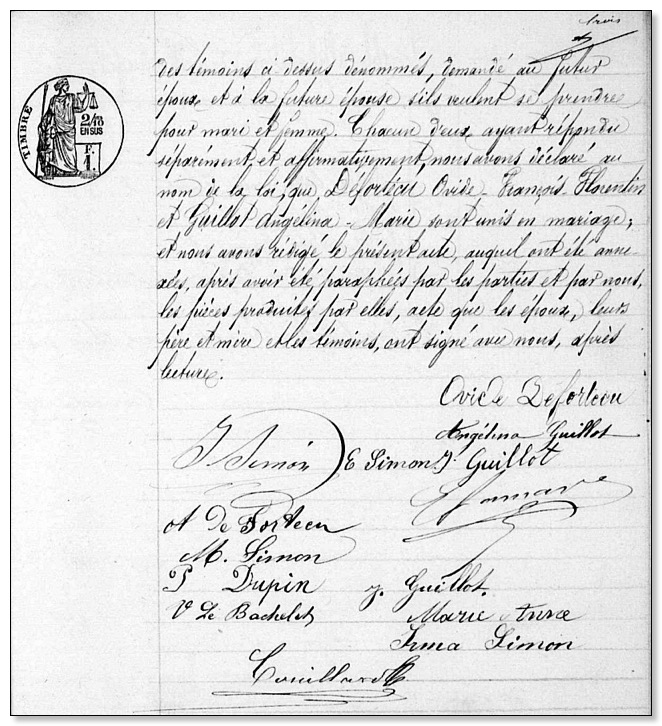 trois
TIMBRE
2/10
EN SUS
F.
1.
des témoins ci dessus dénommés, demandé au futur
époux et à la future épouse s'ils veulent se prendre
pour mari et femme. Chacun d'eux, ayant répondu
séparément et affirmativement, nous avons déclaré au
nom de la loi, que Déforteeu Ovide François Florentin
et Guillot Angélina Marie sont unis en mariage;
et nous avons rédigé le présent acte, auquel ont été anne-
xées, après avoir été paraphées par les parties et par nous,
les pièces produites par elles, acte que les époux, leurs
père et mère et les témoins, ont signé avec nous, après
lecture.
Ovide Deforteeu
Angélina Guillot
J Simon E Simon J. Guillot
A De Forteeu
M. Simon
P Dupin J. Guillot.
V Le Bachelet Marie
Irma Simon
Couillard